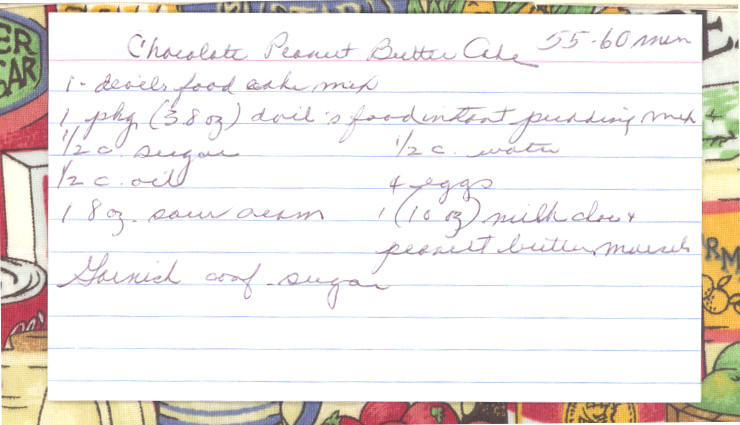 Chocolate Peanut Butter Cake 55-60 min
1 - devils food cake mix
1 pkg (3.8 oz) devil's food instant pudding mix
1/2 c. sugar 1/2 c. water
1/2 c. oil 4 eggs
1 8 oz. sour cream 1 (10 oz) milk choc &
peanut butter morsels
Garnish conf. sugar
ER
AR
E
RM